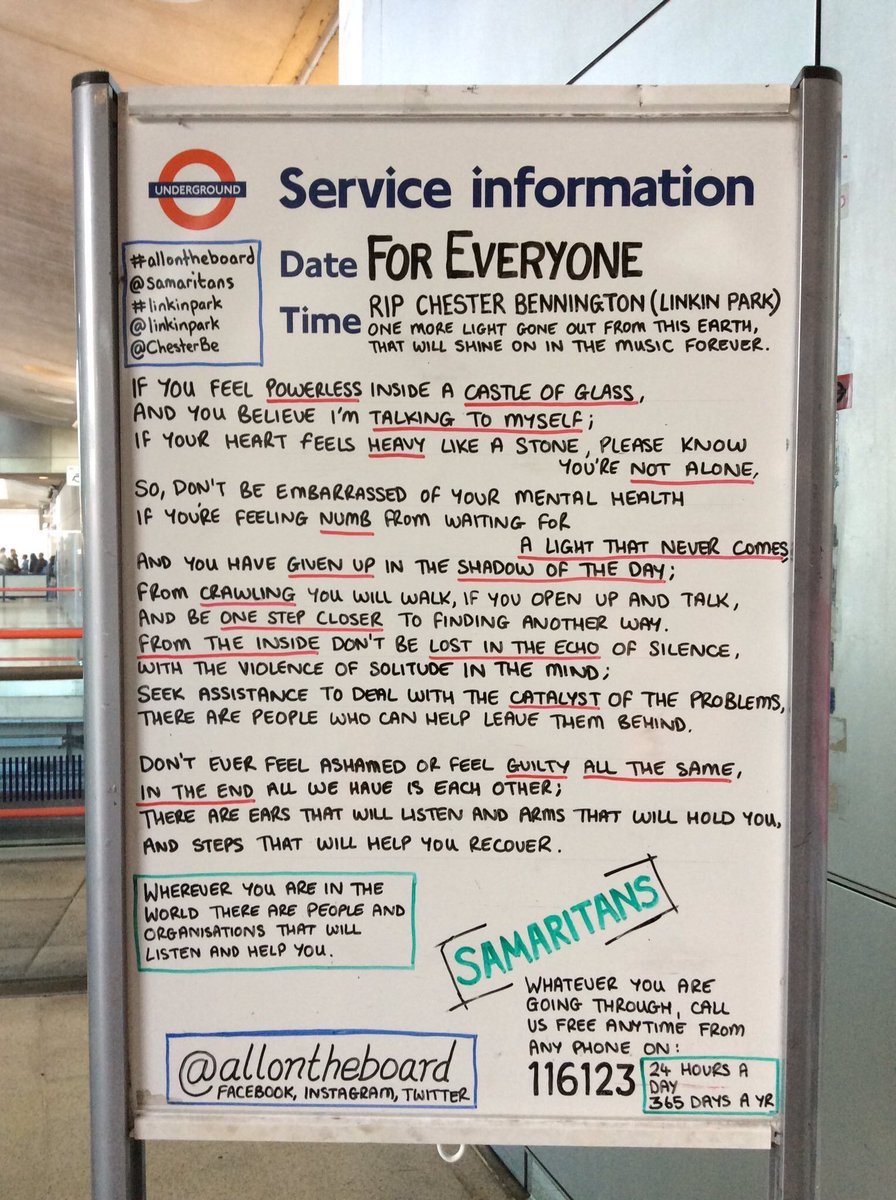 UNDERGROUND
Service information
#allontheboard
@samaritans
#linkinpark
@linkinpark
@ChesterBe
Date FOR EVERYONE
Time RIP CHESTER BENNINGTON (LINKIN PARK)
ONE MORE LIGHT GONE OUT FROM THIS EARTH,
THAT WILL SHINE ON IN THE MUSIC FOREVER.
IF YOU FEEL POWERLESS INSIDE A CASTLE OF GLASS,
AND YOU BELIEVE I'M TALKING TO MYSELF;
IF YOUR HEART FEELS HEAVY LIKE A STONE, PLEASE KNOW
YOU'RE NOT ALONE,
SO, DON'T BE EMBARRASSED OF YOUR MENTAL HEALTH
IF YOU'RE FEELING NUMB FROM WAITING FOR
A LIGHT THAT NEVER COMES
AND YOU HAVE GIVEN UP IN THE SHADOW OF THE DAY;
FROM CRAWLING YOU WILL WALK, IF YOU OPEN UP AND TALK,
AND BE ONE STEP CLOSER TO FINDING ANOTHER WAY.
FROM THE INSIDE DON'T BE LOST IN THE ECHO OF SILENCE,
WITH THE VIOLENCE OF SOLITUDE IN THE MIND;
SEEK ASSISTANCE TO DEAL WITH THE CATALYST OF THE PROBLEMS,
THERE ARE PEOPLE WHO CAN HELP LEAVE THEM BEHIND.
DON'T EVER FEEL ASHAMED OR FEEL GUILTY ALL THE SAME,
IN THE END ALL WE HAVE IS EACH OTHER;
THERE ARE EARS THAT WILL LISTEN AND ARMS THAT WILL HOLD YOU,
AND STEPS THAT WILL HELP YOU RECOVER.
WHEREVER YOU ARE IN THE
WORLD THERE ARE PEOPLE AND
ORGANISATIONS THAT WILL
LISTEN AND HELP YOU.
SAMARITANS
WHATEVER YOU ARE
GOING THROUGH, CALL
US FREE ANYTIME FROM
ANY PHONE ON:
116123
24 HOURS A
DAY
365 DAYS A YR
@allontheboard
FACEBOOK, INSTAGRAM, TWITTER